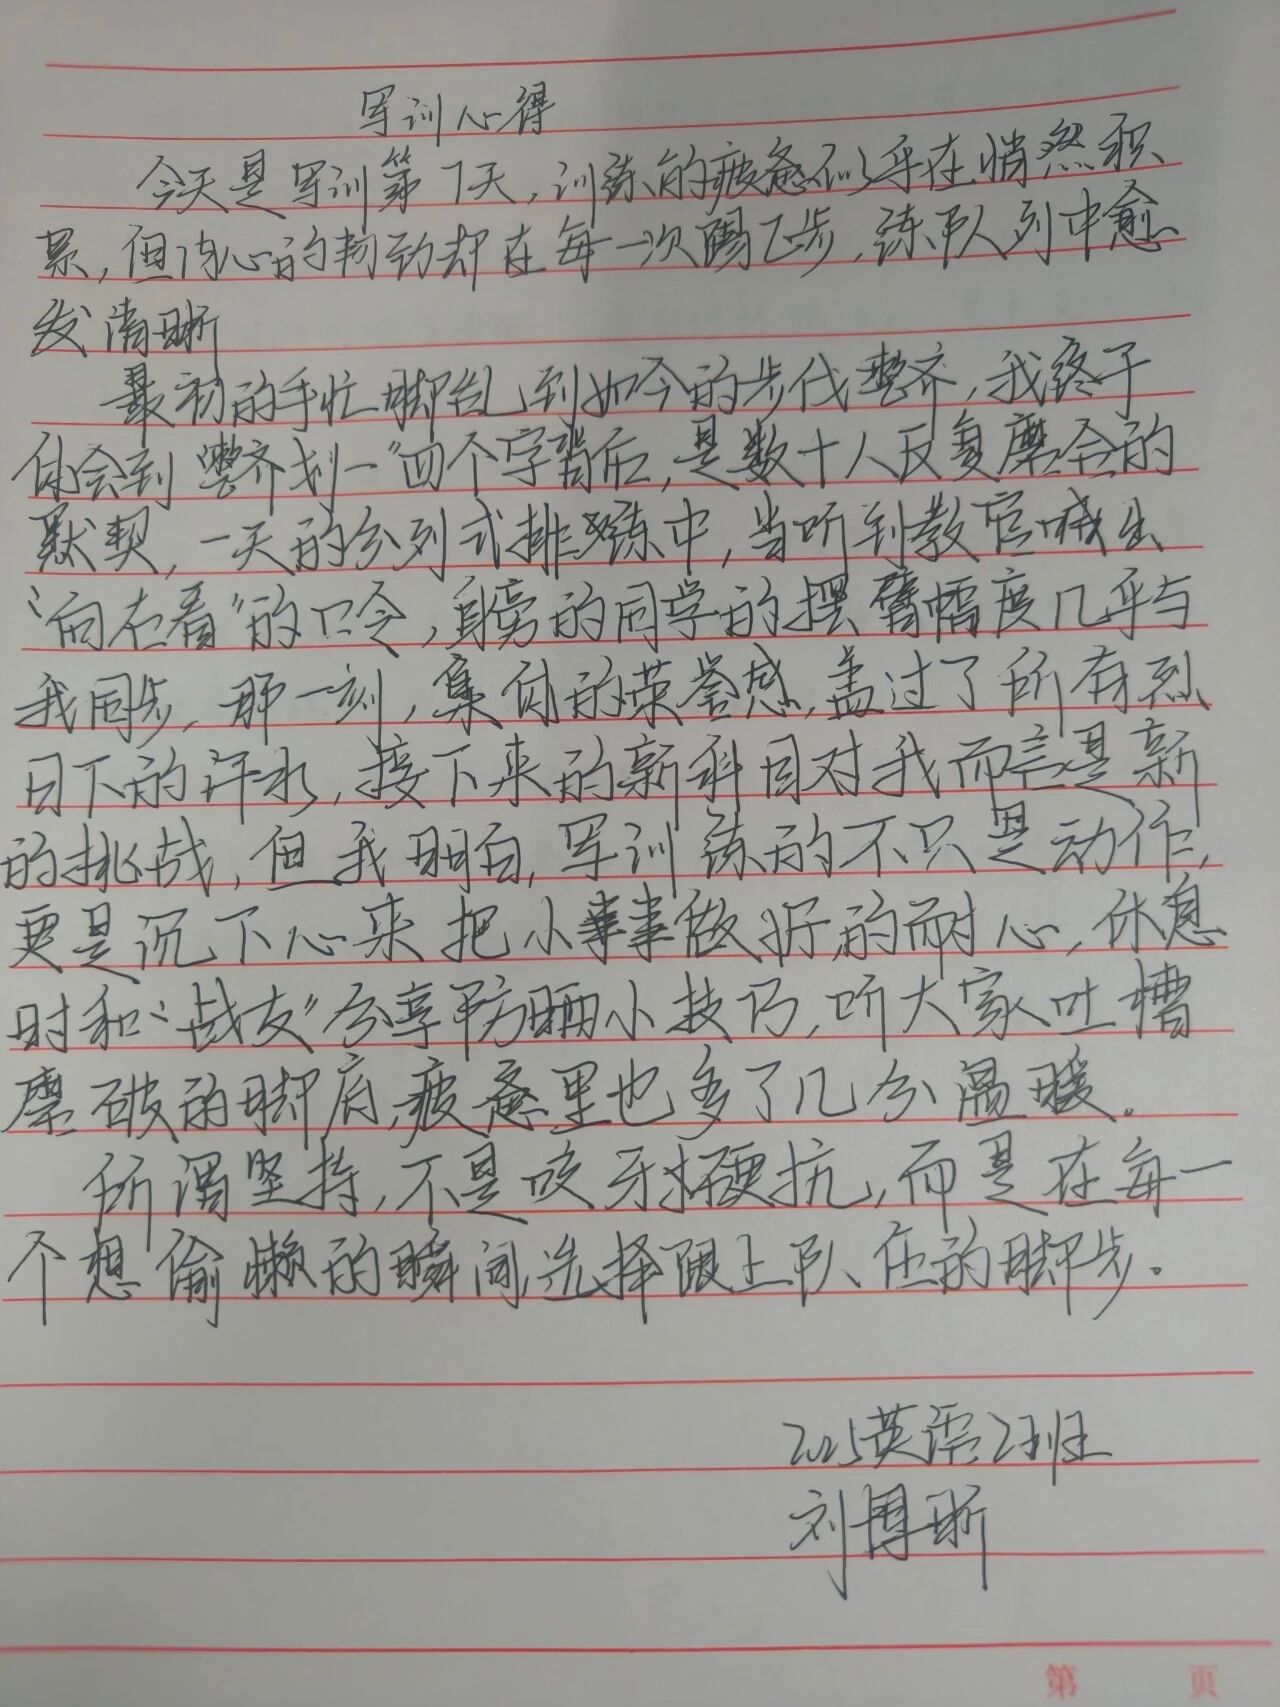 军训心得
今天是军训第7天,训练的疲惫似乎在悄然积
累,但内心的韧劲却在每一次踢正步,练队列中愈
发清晰
最初的手忙脚乱到如今的步伐整齐,我终于
体会到"整齐划一"四个字背后,是数十人反复磨合的
默契,一天的分列式排练中,当听到教官喊出
"向右看"的口令,身旁的同学的摆臂幅度几乎与
我同步,那一刻,集体的荣誉感,盖过了所有烈
日下的汗水,接下来的新科目对我而言是新
的挑战,但我明白,军训练的不只是动作,
更是沉下心来把小事事做好的耐心,休息
时和"战友"分享防晒小技巧,听大家吐槽
磨破的脚底,疲惫里也多了几分温暖。
所谓坚持,不是咬牙硬抗,而是在每一
个想偷懒的瞬间,选择跟上队伍的脚步。
2025英语2班
刘博昕
第 页